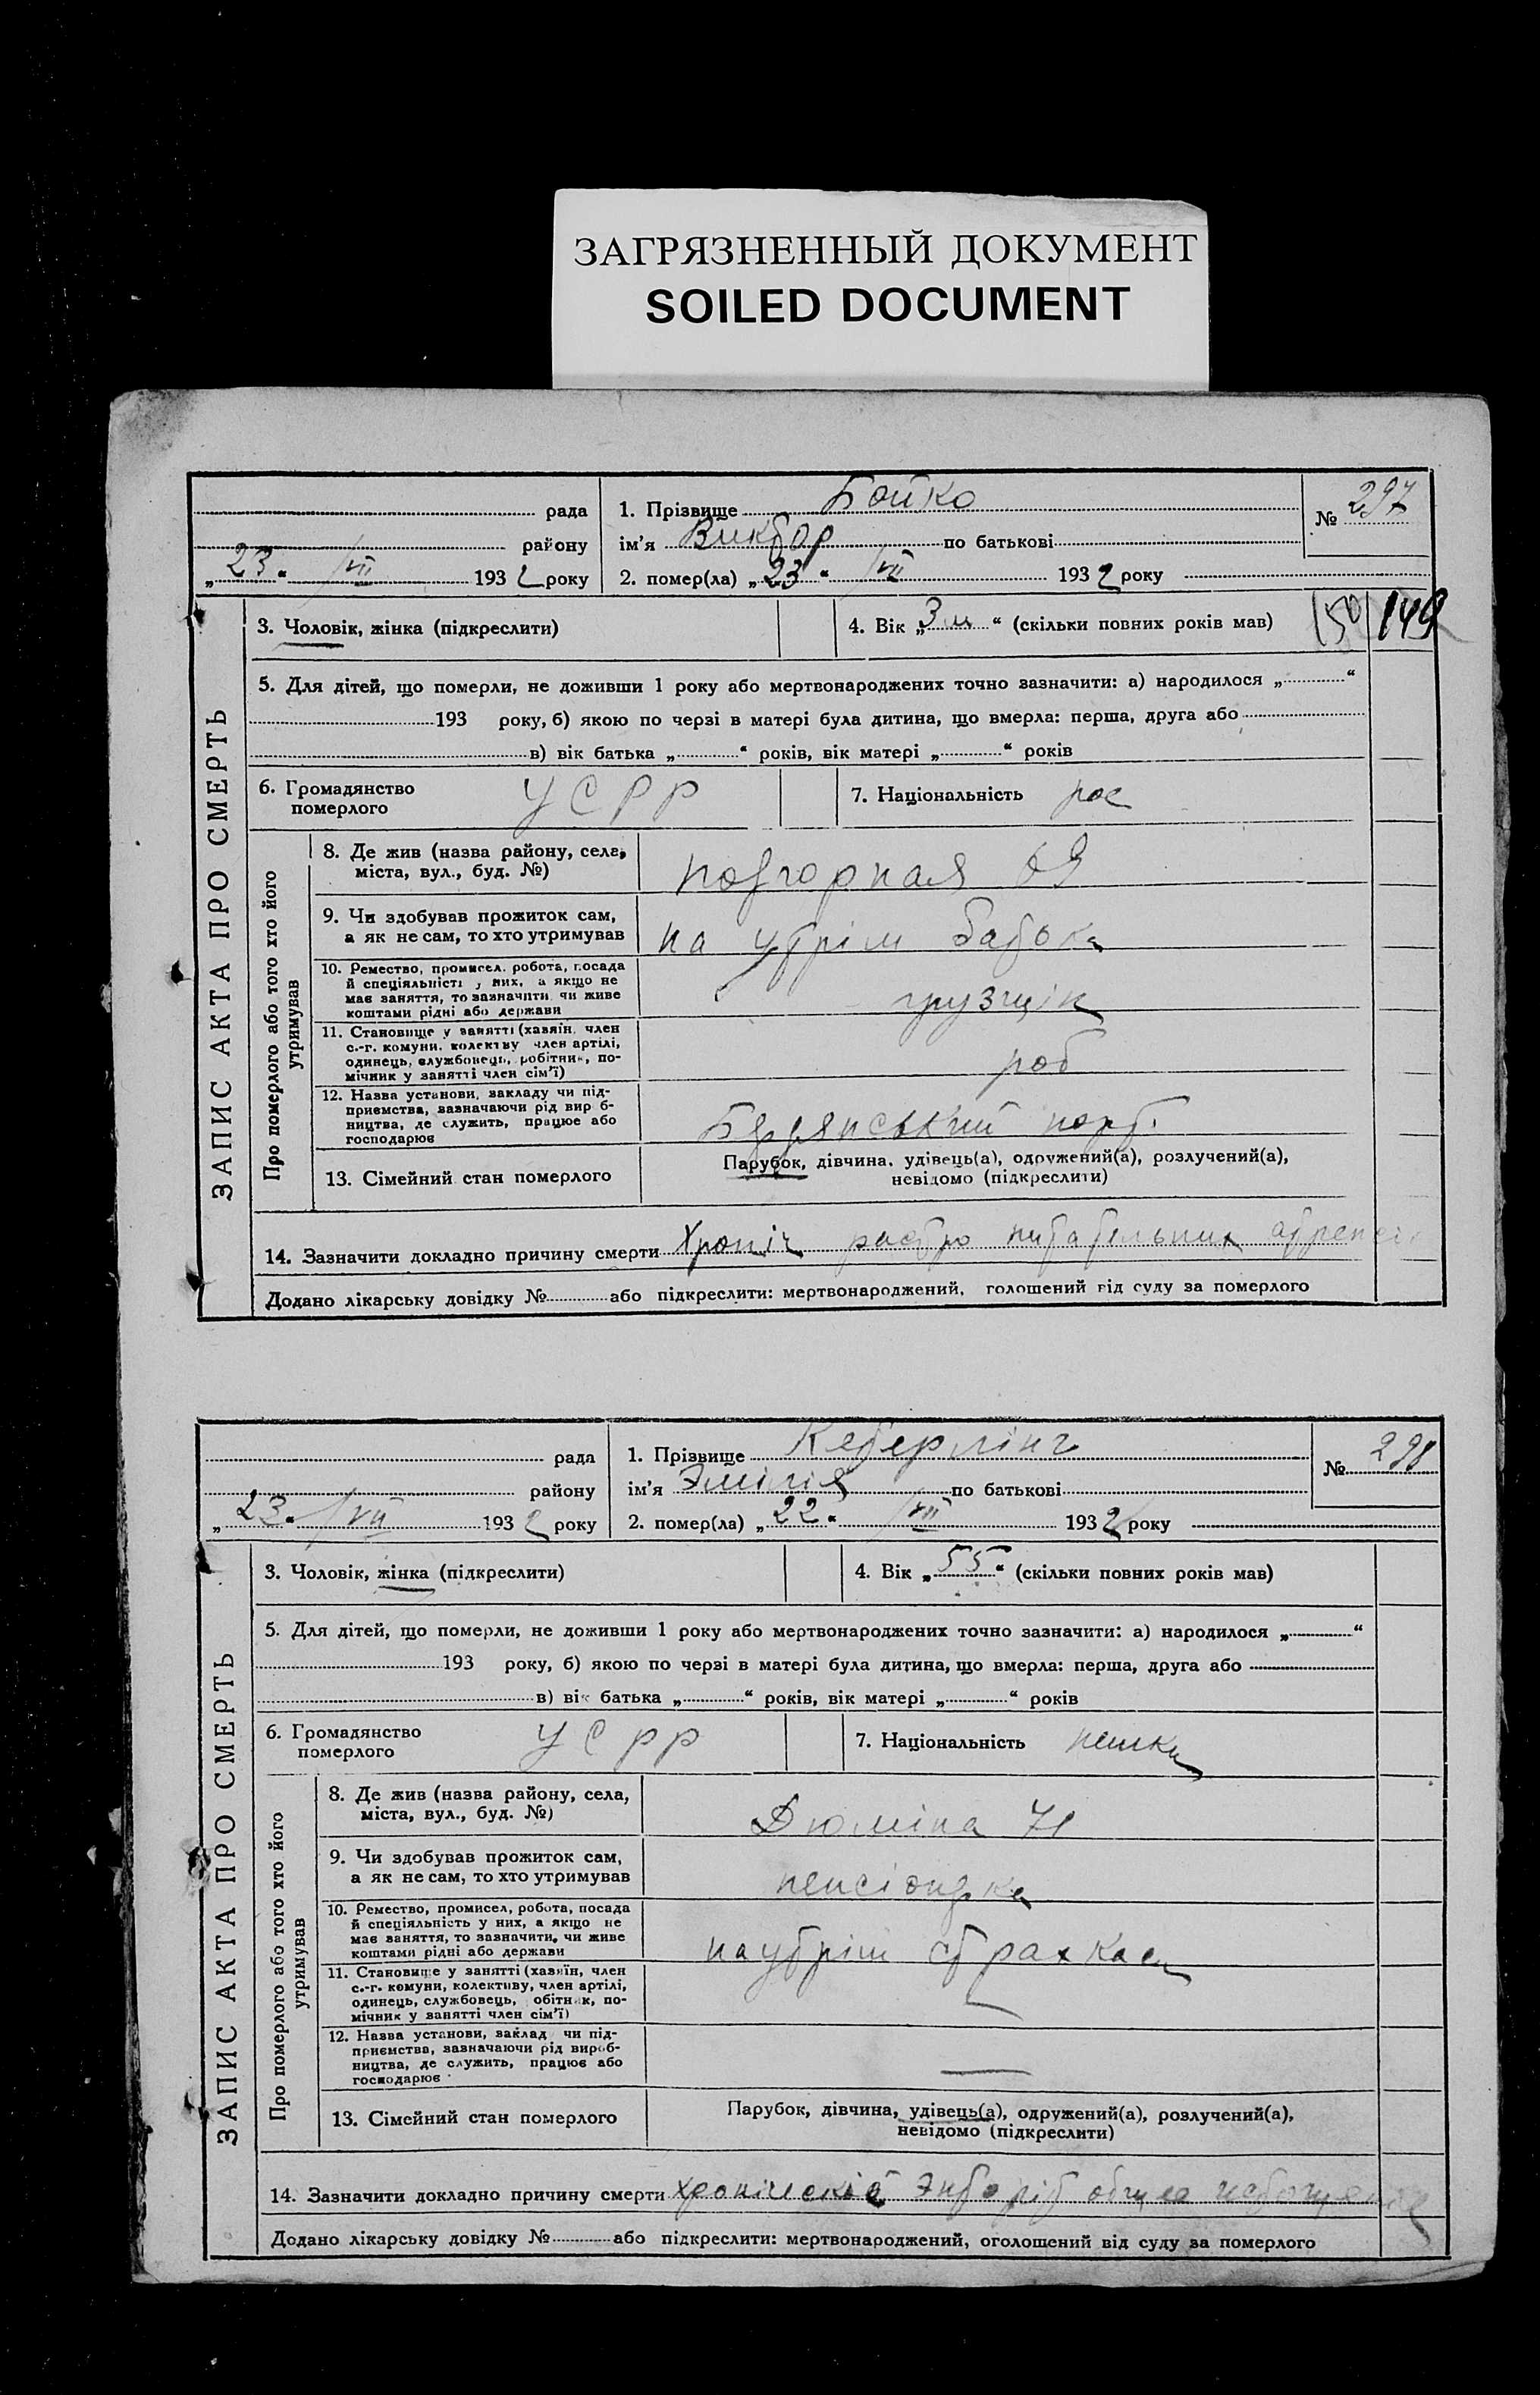 ЗАГРЯЗНЕННЫЙ ДОКУМЕНТ
SOILED DOCUMENT
рада
1. Прізвище Бойко
№ 297
району
ім'я Виктор по батькові
„23“ VII 1932 року
2. помер(ла) „23“ VII 1932 року
3. Чоловік, жінка (підкреслити)
4. Вік „3 м“ (скільки повних років мав)
150 149
5. Для дітей, що померли, не доживши 1 року або мертвонароджених точно зазначити: а) народилося „ “
193 року, б) якою по черзі в матері була дитина, що вмерла: перша, друга або
в) вік батька „ “ років, вік матері „ “ років
6. Громадянство
померлого
УСРР
7. Національність рос
ЗАПИС АКТА ПРО СМЕРТЬ
Про померлого або того хто його
утримував
8. Де жив (назва району, села,
міста, вул., буд. №)
подгорная 69
9. Чи здобував прожиток сам,
а як не сам, то хто утримував
на утрім батька
10. Ремество, промисел, робота, посада
й спеціяльність у них, а якщо не
має заняття, то зазначити чи живе
коштами рідні або держави
грузщік
11. Становище у занятті (хазяїн, член
с.-г. комуни, колективу член артілі,
одинець, службовець, робітник, по-
мічник у занятті член сім'ї)
роб
12. Назва установи, закладу чи під-
приємства, зазначаючи рід вироб-
ництва, де служить, працює або
господарює
Бердянський порт.
13. Сімейний стан померлого
Парубок, дівчина, удівець(а), одружений(а), розлучений(а),
невідомо (підкреслити)
14. Зазначити докладно причину смерти Хроніч растро питательних
Додано лікарську довідку № або підкреслити: мертвонароджений, голошений від суду за померлого
рада
1. Прізвище Кеберлінг
№ 298
району
ім'я Эмілія по батькові
„23“ VII 1932 року
2. помер(ла) „22“ VII 1932 року
3. Чоловік, жінка (підкреслити)
4. Вік „55“ (скільки повних років мав)
5. Для дітей, що померли, не доживши 1 року або мертвонароджених точно зазначити: а) народилося „ “
193 року, б) якою по черзі в матері була дитина, що вмерла: перша, друга або
в) вік батька „ “ років, вік матері „ “ років
6. Громадянство
померлого
УСРР
7. Національність немка
ЗАПИС АКТА ПРО СМЕРТЬ
Про померлого або того хто його
утримував
8. Де жив (назва району, села,
міста, вул., буд. №)
Дюміна 71
9. Чи здобував прожиток сам,
а як не сам, то хто утримував
пенсіонерка
10. Ремество, промисел, робота, посада
й спеціяльність у них, а якщо не
має заняття, то зазначити, чи живе
коштами рідні або держави
на утрім страхкаси
11. Становище у занятті (хазяїн, член
с.-г. комуни, колективу, член артілі,
одинець, службовець, обітник, по-
мічник у занятті член сім'ї)
12. Назва установи, заклад чи під-
приємства, зазначаючи рід вироб-
ництва, де служить, працює або
господарює
13. Сімейний стан померлого
Парубок, дівчина, удівець(а), одружений(а), розлучений(а),
невідомо (підкреслити)
14. Зазначити докладно причину смерти хроніческій Энтеріт общее истощеніе
Додано лікарську довідку № або підкреслити: мертвонароджений, оголошений від суду за померлого